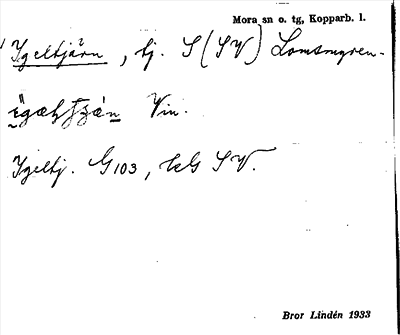 Mora sn o. tg, Kopparb. l.
Igeltjärn, tj. S (SV) Lomsmyren.
Vin.
Igeltj. G103, kG SV.
Bror Lindén 1933